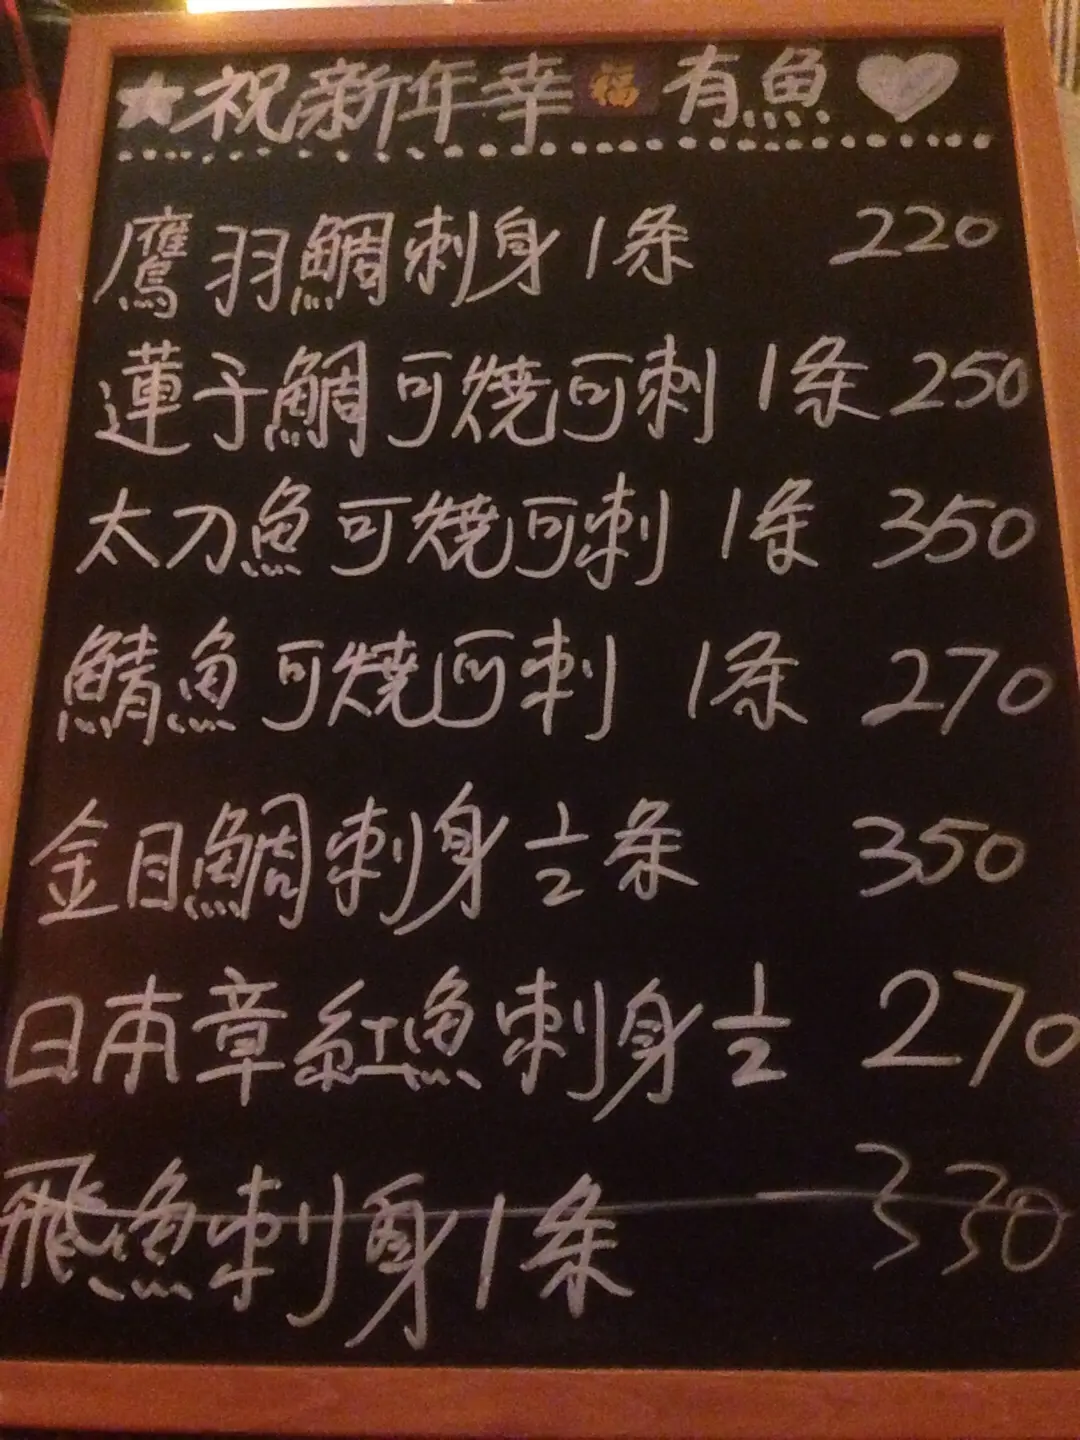 ★祝新年幸福有魚♥
鷹羽鯛刺身1条 220
蓮子鯛可燒可刺 1条 250
太刀魚可燒可刺 1条 350
鯖魚可燒可刺 1条 270
金目鯛刺身½条 350
日本章紅魚刺身½ 270
飛魚刺身1条 330